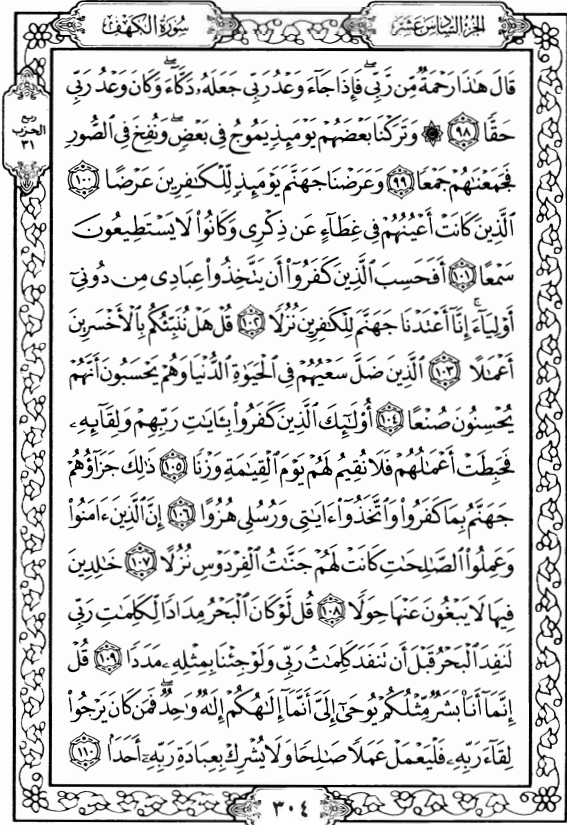 الجزء السادس عشر
سورة الكهف
ربع
الحزب
٣١
قَالَ هَٰذَا رَحْمَةٌ مِّن رَّبِّي ۖ فَإِذَا جَاءَ وَعْدُ رَبِّي جَعَلَهُۥ دَكَّاءَ ۖ وَكَانَ وَعْدُ رَبِّي
حَقًّا ٩٨ ۞ وَتَرَكْنَا بَعْضَهُمْ يَوْمَئِذٍ يَمُوجُ فِي بَعْضٍ ۖ وَنُفِخَ فِي الصُّورِ
فَجَمَعْنَٰهُمْ جَمْعًا ٩٩ وَعَرَضْنَا جَهَنَّمَ يَوْمَئِذٍ لِّلْكَٰفِرِينَ عَرْضًا ١٠٠
الَّذِينَ كَانَتْ أَعْيُنُهُمْ فِي غِطَاءٍ عَن ذِكْرِي وَكَانُوا۟ لَا يَسْتَطِيعُونَ
سَمْعًا ١٠١ أَفَحَسِبَ الَّذِينَ كَفَرُوا۟ أَن يَتَّخِذُوا۟ عِبَادِي مِن دُونِيٓ
أَوْلِيَاءَ ۚ إِنَّآ أَعْتَدْنَا جَهَنَّمَ لِلْكَٰفِرِينَ نُزُلًا ١٠٢ قُلْ هَلْ نُنَبِّئُكُم بِالْأَخْسَرِينَ
أَعْمَٰلًا ١٠٣ الَّذِينَ ضَلَّ سَعْيُهُمْ فِي الْحَيَوٰةِ الدُّنْيَا وَهُمْ يَحْسَبُونَ أَنَّهُمْ
يُحْسِنُونَ صُنْعًا ١٠٤ أُو۟لَٰٓئِكَ الَّذِينَ كَفَرُوا۟ بِـَٔايَٰتِ رَبِّهِمْ وَلِقَآئِهِۦ
فَحَبِطَتْ أَعْمَٰلُهُمْ فَلَا نُقِيمُ لَهُمْ يَوْمَ الْقِيَٰمَةِ وَزْنًا ١٠٥ ذَٰلِكَ جَزَآؤُهُمْ
جَهَنَّمُ بِمَا كَفَرُوا۟ وَاتَّخَذُوٓا۟ ءَايَٰتِي وَرُسُلِي هُزُوًا ١٠٦ إِنَّ الَّذِينَ ءَامَنُوا۟
وَعَمِلُوا۟ الصَّٰلِحَٰتِ كَانَتْ لَهُمْ جَنَّٰتُ الْفِرْدَوْسِ نُزُلًا ١٠٧ خَٰلِدِينَ
فِيهَا لَا يَبْغُونَ عَنْهَا حِوَلًا ١٠٨ قُل لَّوْ كَانَ الْبَحْرُ مِدَادًا لِّكَلِمَٰتِ رَبِّي
لَنَفِدَ الْبَحْرُ قَبْلَ أَن تَنفَدَ كَلِمَٰتُ رَبِّي وَلَوْ جِئْنَا بِمِثْلِهِۦ مَدَدًا ١٠٩ قُلْ
إِنَّمَآ أَنَا۠ بَشَرٌ مِّثْلُكُمْ يُوحَىٰٓ إِلَيَّ أَنَّمَآ إِلَٰهُكُمْ إِلَٰهٌ وَٰحِدٌ ۖ فَمَن كَانَ يَرْجُوا۟
لِقَآءَ رَبِّهِۦ فَلْيَعْمَلْ عَمَلًا صَٰلِحًا وَلَا يُشْرِكْ بِعِبَادَةِ رَبِّهِۦٓ أَحَدًۢا ١١٠
٣٠٤